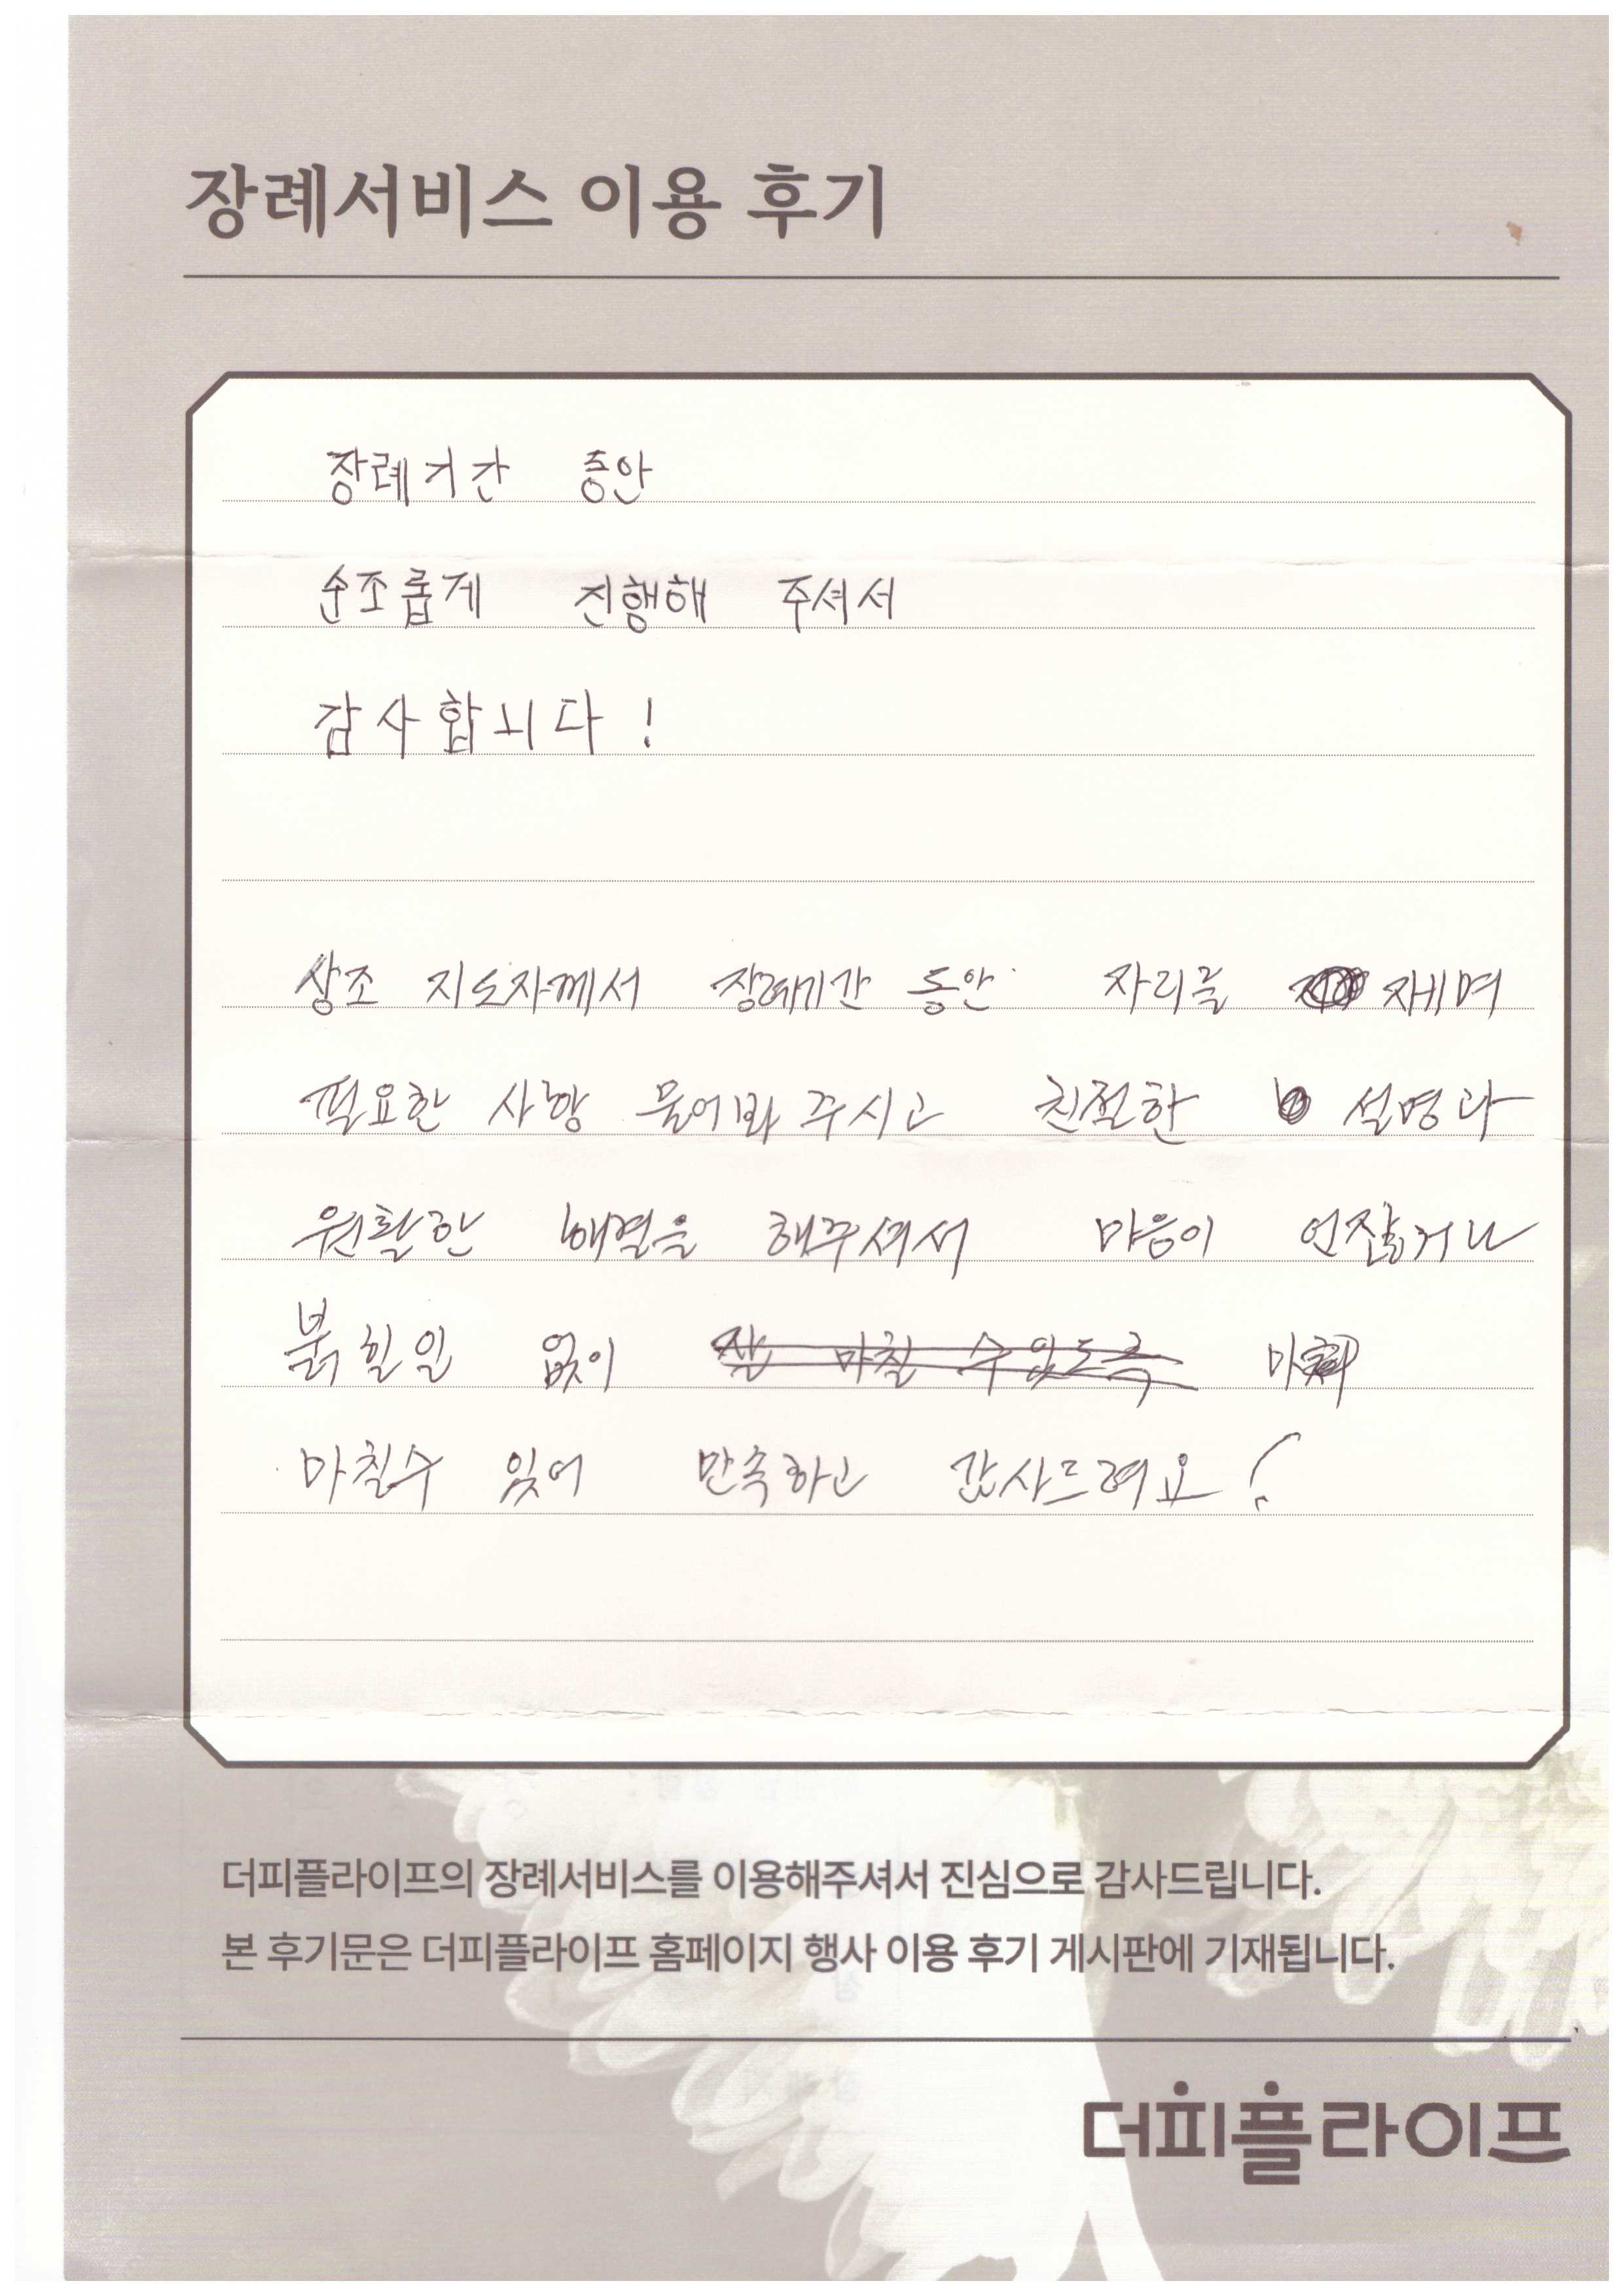 장례서비스 이용 후기
장례기간 동안
순조롭게 진행해 주셔서
감사합니다!
상조 지도자께서 장례기간 동안 자리를 재며
필요한 사항 물어봐 주시고 친절한 설명과
원활한 해결을 해주셔서 마음이 언잖거나
붉힐일 없이 잘 마칠 수 있도록
마칠수 있어 만족하고 감사드려요!
더피플라이프의 장례서비스를 이용해주셔서 진심으로 감사드립니다.
본 후기문은 더피플라이프 홈페이지 행사 이용 후기 게시판에 기재됩니다.
더피플라이프